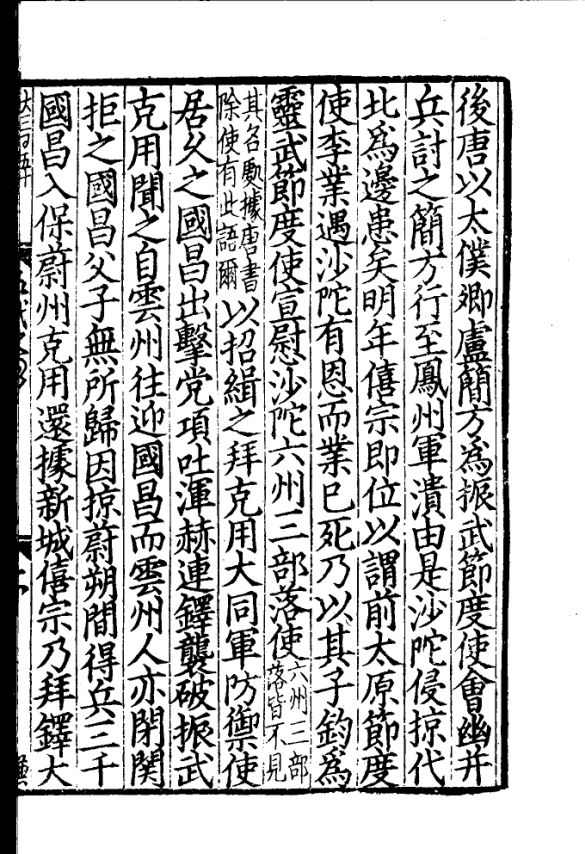 後唐以太僕卿盧簡方爲振武節度使會幽并
兵討之簡方行至鳳州軍潰由是沙陀侵掠代
北爲邊患矣明年僖宗即位以謂前太原節度
使李業遇沙陀有恩而業巳死乃以其子鈞爲
靈武節度使宣慰沙陀六州三部落使六州三部落皆不見
其名處據唐書除使有此語爾以招緝之拜克用大同軍防禦使
居乆之國昌出擊党項吐渾赫連鐸襲破振武
克用聞之自雲州往迎國昌而雲州人亦閉関
拒之國昌父子無所歸因掠蔚朔間得兵三千
國昌入保蔚州克用還據新城僖宗乃拜鐸大